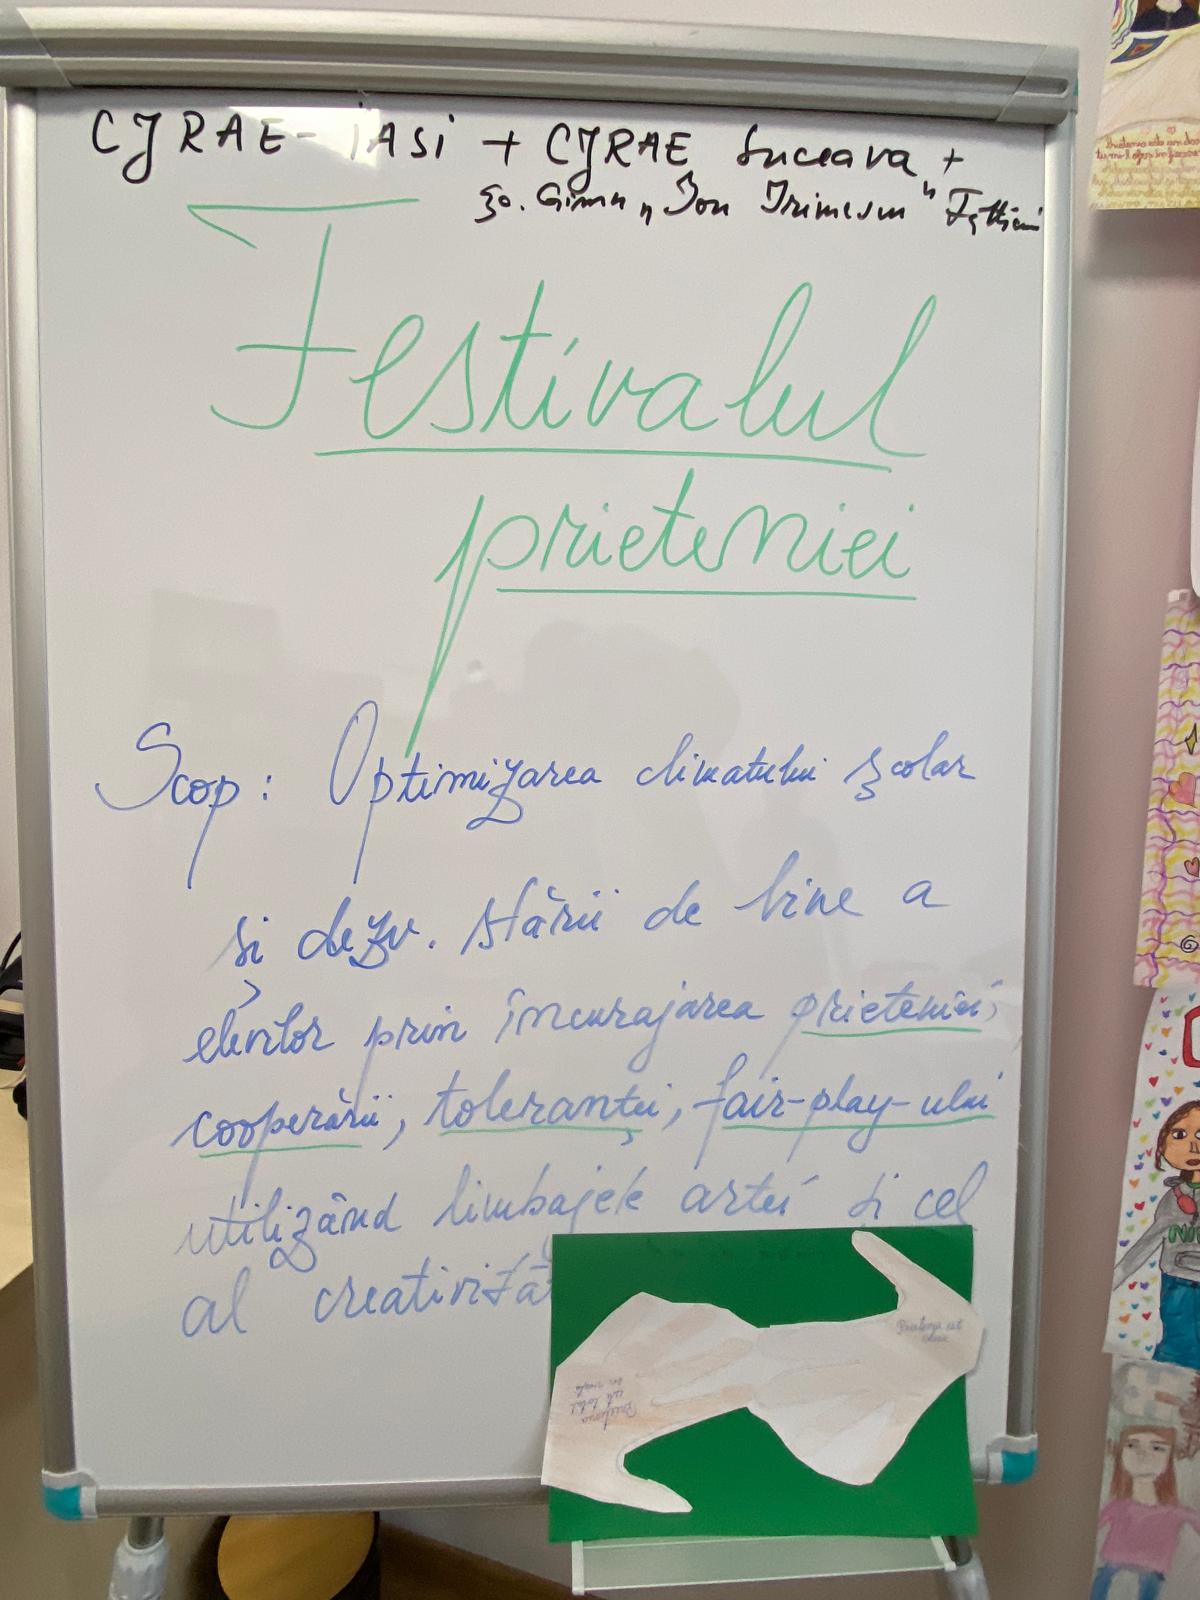 CJRAE-iASi + CJRAE Suceava +
Șc. Gimn „Ion Irimescu" Fălticeni
Festivalul
prieteniei
Scop: Optimizarea climatului școlar
și dezv. stării de bine a
elevilor prin încurajarea prieteniei,
cooperării, toleranței, fair-play-ului
utilizând limbajele artei și cel
al creativită
Prietenia